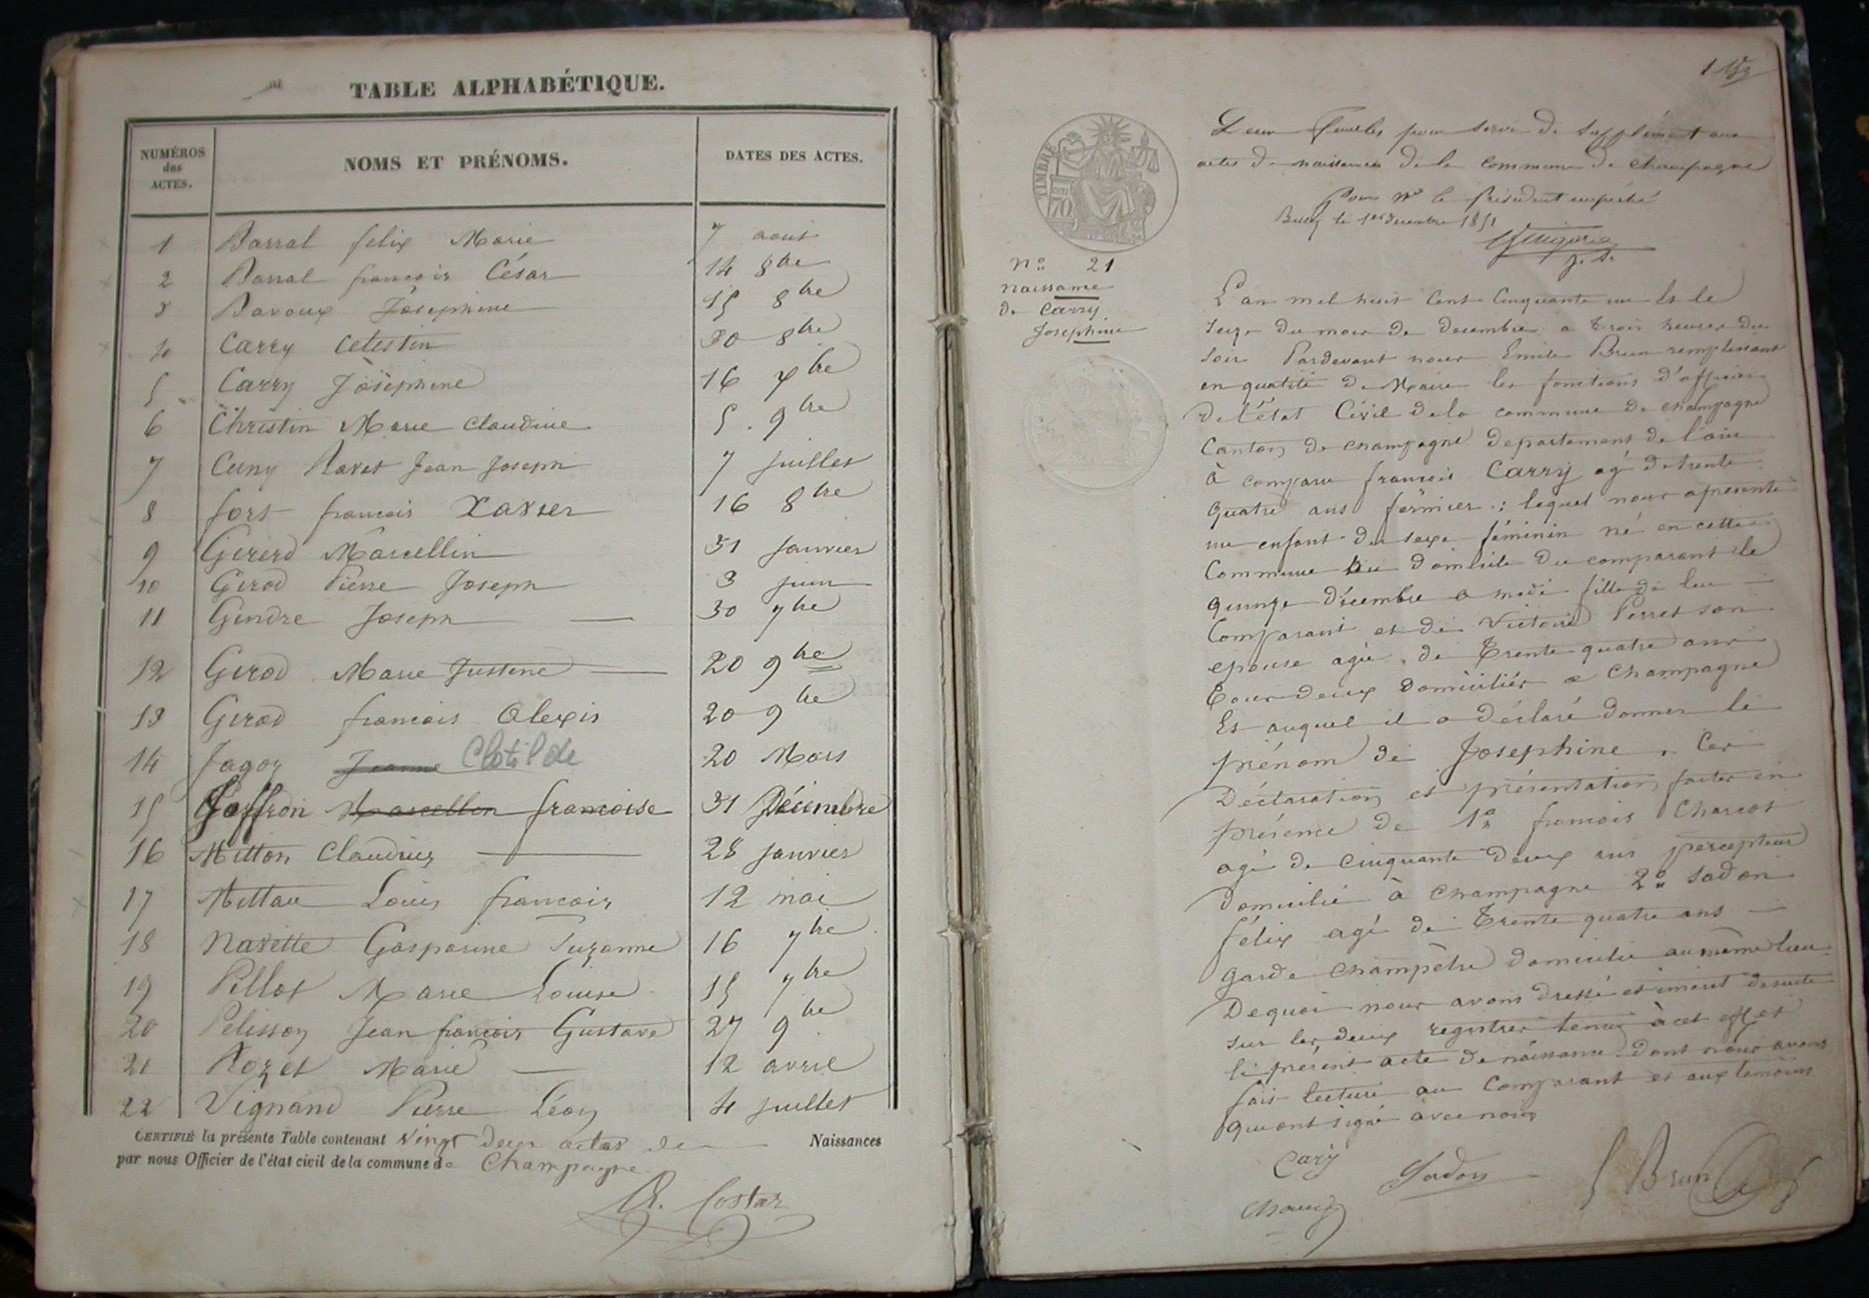 TABLE ALPHABÉTIQUE.
NUMÉROS des ACTES. NOMS ET PRÉNOMS. DATES DES ACTES.
1 Barral felix Marie 7 aout
2 Barral francois César 14 8bre
3 Bavoux Josephine 15 8bre
4 Carry Celestin 30 8bre
5 Carry Josephine 16 xbre
6 Christin Marie Claudine 5 9bre
7 Cuny Ravet Jean Joseph 7 juillet
8 fort francois Xavier 16 8bre
9 Girerd Marcellin 31 janvier
10 Girod Pierre Joseph 3 juin
11 Gindre Joseph 30 7bre
12 Girod Marie Justine 20 9bre
13 Girod francois Alexis 20 9bre
14 Jagoz Jeanne Clotilde 20 Mars
15 Joffron Marcellin francoise 31 Décembre
16 Mitton Claudius 28 janvier
17 Mittau Louis francois 12 mai
18 Navette Gasparine Suzanne 16 7bre
19 Pillot Marie Louise 15 7bre
20 Pelisson Jean françois Gustave 27 9bre
21 Rozet Marie 12 avril
22 Vignand Pierre Léon 4 juillet
CERTIFIÉ la présente Table contenant vingt deux actes de Naissances
par nous Officier de l'état civil de la commune de Champagne
Costaz
Deux feuilles pour servir de supplément aux
actes de naissances de la commune de Champagne
Pour Mr le Président empêché
Belley le 1er Decembre 1851
TIMBRE
70
No 21
naissance
de Carry
Josephine
L'an mil huit cent cinquante un et le
seize du mois de decembre a trois heures du
soir Pardevant nous Emile Brun remplissant
en qualité de Maire les fonctions d'officier
de l'état Civil de la commune de champagne
Canton de champagne departement de l'ain
à comparu francois Carry agé de trente
quatre ans fermier : lequel nous a presenté
un enfant du sexe féminin né en cette
Commune au domicile du comparant le
quinze décembre a midi fille de lui
Comparant et de Victoire Perret son
epouse agée de Trente quatre ans
tous deux domiciliés a Champagne
Et auquel il a déclaré donner le
prénom de Josephine. Ces
Déclaration et présentation faites en
présence de 1o francois Charcot
agé de cinquante deux ans percepteur
domicilié à Champagne 2o Sadon
félix agé de Trente quatre ans
garde champêtre domicilié au même lieu
Dequoi nous avons dressé et inscrit desuite
sur les deux registres tenus à cet effet
le présent acte de naissance dont nous avons
fait lecture au Comparant et aux temoins
qui ont signé avec nous
Cary Sadon Brun